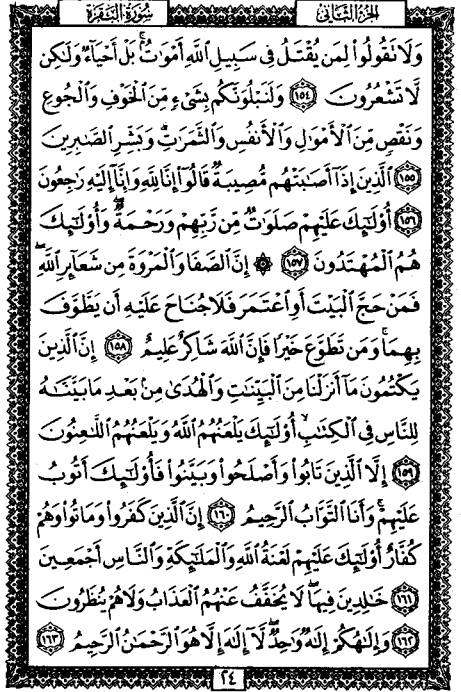 سُورَةُ البَقَرَةِ
الجُزءُ الثَّانِى
وَلَا تَقُولُوا۟ لِمَن يُقْتَلُ فِى سَبِيلِ ٱللَّهِ أَمْوَٰتٌۢ ۚ بَلْ أَحْيَآءٌ وَلَٰكِن
لَّا تَشْعُرُونَ ١٥٤ وَلَنَبْلُوَنَّكُم بِشَىْءٍ مِّنَ ٱلْخَوْفِ وَٱلْجُوعِ
وَنَقْصٍ مِّنَ ٱلْأَمْوَٰلِ وَٱلْأَنفُسِ وَٱلثَّمَرَٰتِ ۗ وَبَشِّرِ ٱلصَّٰبِرِينَ
١٥٥ ٱلَّذِينَ إِذَآ أَصَٰبَتْهُم مُّصِيبَةٌ قَالُوٓا۟ إِنَّا لِلَّهِ وَإِنَّآ إِلَيْهِ رَٰجِعُونَ
١٥٦ أُو۟لَٰٓئِكَ عَلَيْهِمْ صَلَوَٰتٌ مِّن رَّبِّهِمْ وَرَحْمَةٌ ۖ وَأُو۟لَٰٓئِكَ
هُمُ ٱلْمُهْتَدُونَ ١٥٧ ۞ إِنَّ ٱلصَّفَا وَٱلْمَرْوَةَ مِن شَعَآئِرِ ٱللَّهِ ۖ
فَمَنْ حَجَّ ٱلْبَيْتَ أَوِ ٱعْتَمَرَ فَلَا جُنَاحَ عَلَيْهِ أَن يَطَّوَّفَ
بِهِمَا ۚ وَمَن تَطَوَّعَ خَيْرًا فَإِنَّ ٱللَّهَ شَاكِرٌ عَلِيمٌ ١٥٨ إِنَّ ٱلَّذِينَ
يَكْتُمُونَ مَآ أَنزَلْنَا مِنَ ٱلْبَيِّنَٰتِ وَٱلْهُدَىٰ مِنۢ بَعْدِ مَا بَيَّنَّٰهُ
لِلنَّاسِ فِى ٱلْكِتَٰبِ ۙ أُو۟لَٰٓئِكَ يَلْعَنُهُمُ ٱللَّهُ وَيَلْعَنُهُمُ ٱللَّٰعِنُونَ
١٥٩ إِلَّا ٱلَّذِينَ تَابُوا۟ وَأَصْلَحُوا۟ وَبَيَّنُوا۟ فَأُو۟لَٰٓئِكَ أَتُوبُ
عَلَيْهِمْ ۚ وَأَنَا ٱلتَّوَّابُ ٱلرَّحِيمُ ١٦٠ إِنَّ ٱلَّذِينَ كَفَرُوا۟ وَمَاتُوا۟ وَهُمْ
كُفَّارٌ أُو۟لَٰٓئِكَ عَلَيْهِمْ لَعْنَةُ ٱللَّهِ وَٱلْمَلَٰٓئِكَةِ وَٱلنَّاسِ أَجْمَعِينَ
١٦١ خَٰلِدِينَ فِيهَا ۖ لَا يُخَفَّفُ عَنْهُمُ ٱلْعَذَابُ وَلَا هُمْ يُنظَرُونَ
١٦٢ وَإِلَٰهُكُمْ إِلَٰهٌ وَٰحِدٌ ۖ لَّآ إِلَٰهَ إِلَّا هُوَ ٱلرَّحْمَٰنُ ٱلرَّحِيمُ ١٦٣
٢٤